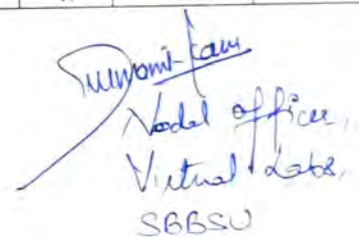 Nodal officer,
Virtual Labs,
SBBSU